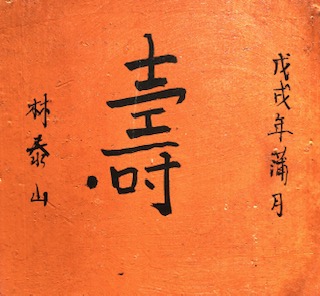 戊戌年蒲月
壽
林泰山